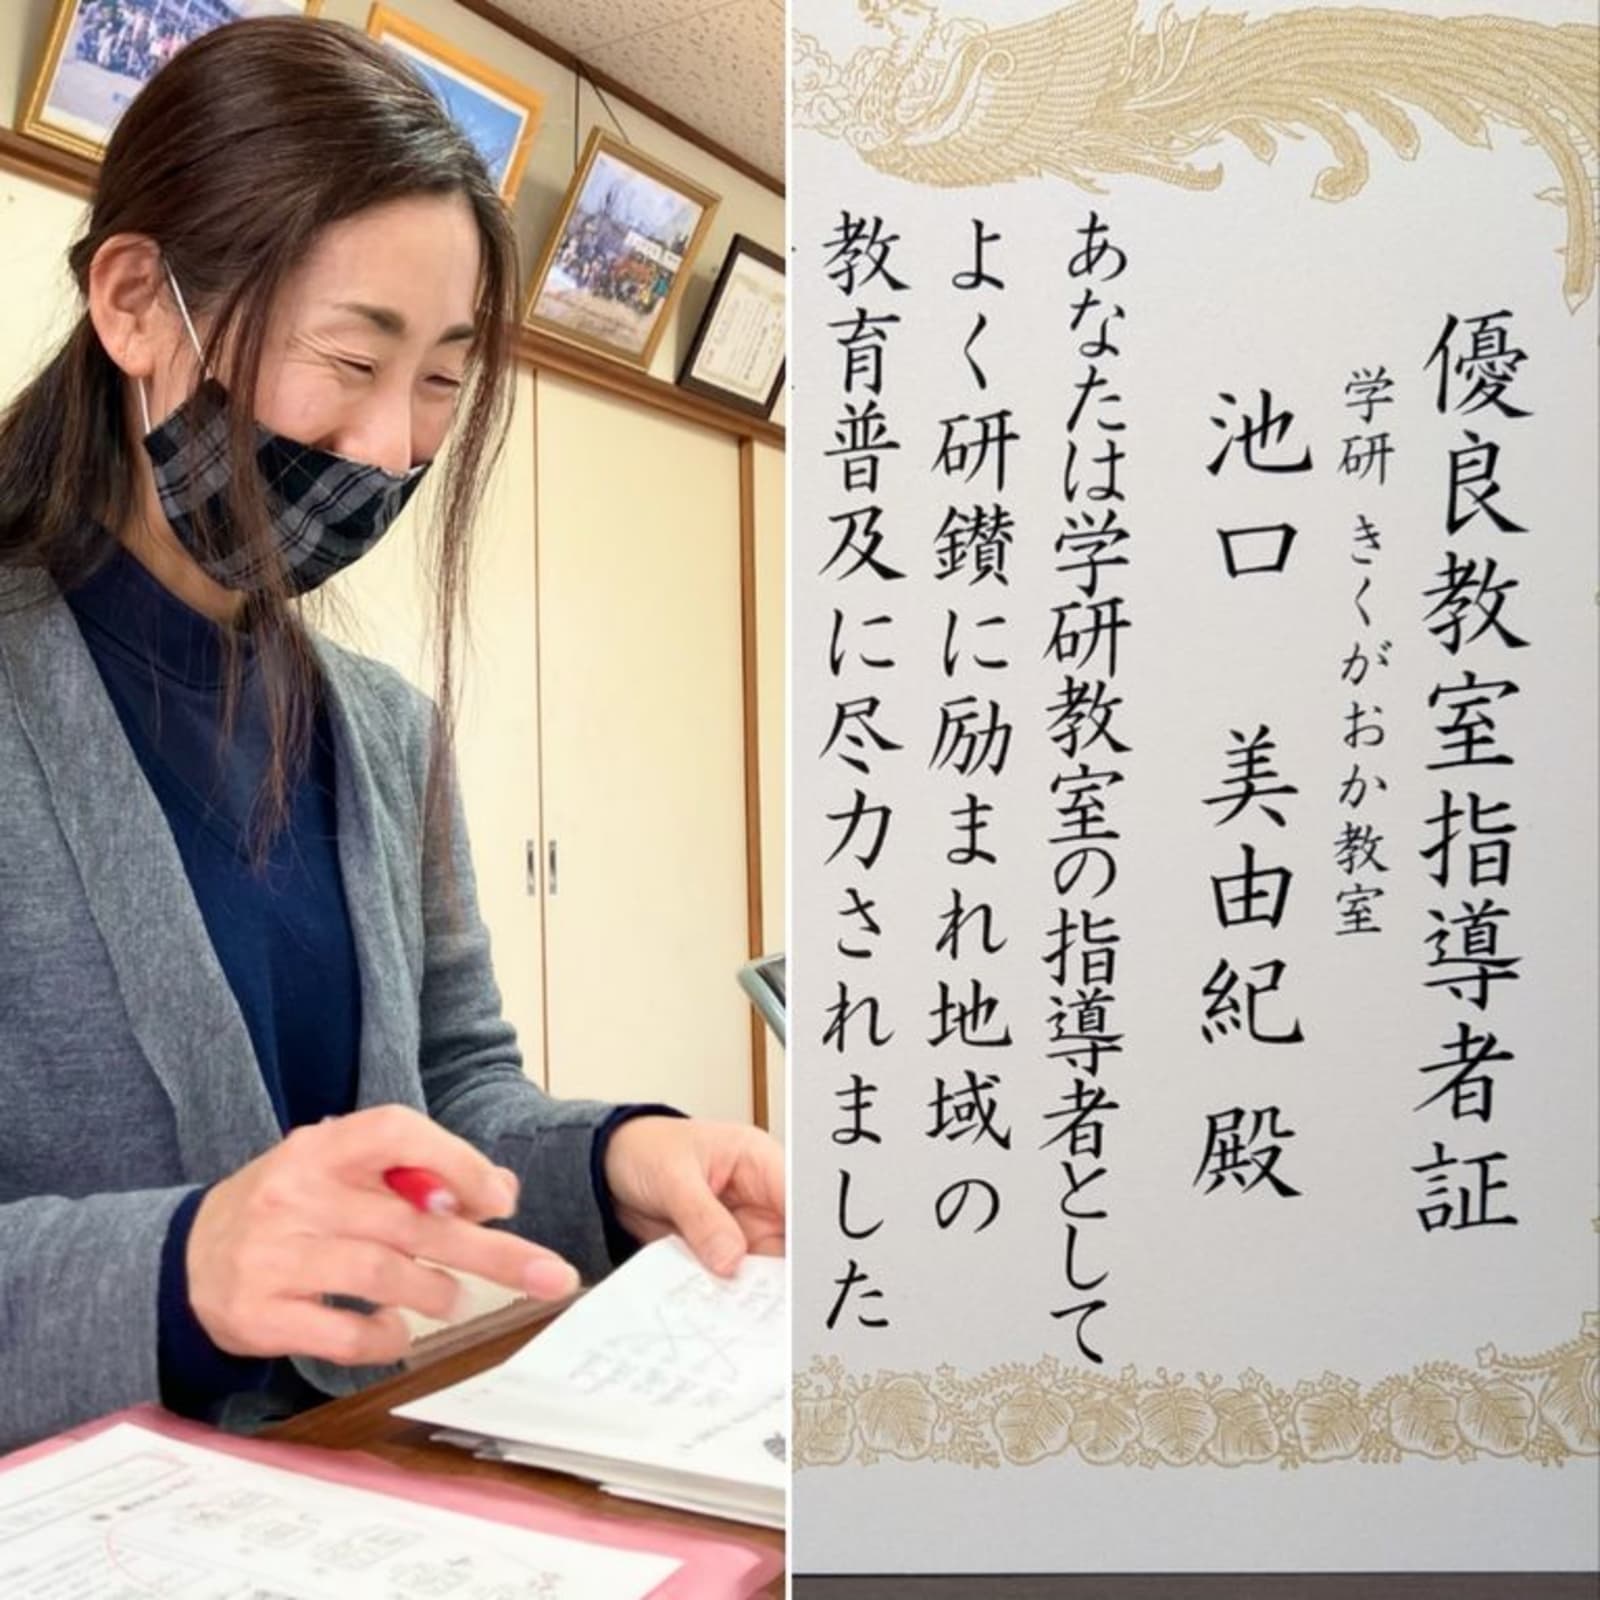 優良教室指導者証
学研 きくがおか教室
池口 美由紀 殿
あなたは学研教室の指導者として
よく研鑚に励まれ地域の
教育普及に尽力されました